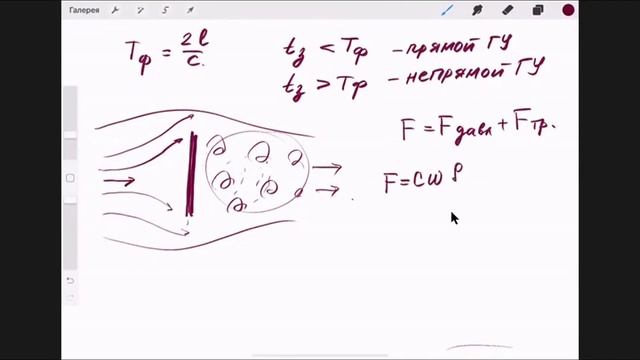 Галерея
Tф = 2l/c.
tз < Tф – прямой ГУ
tз > Tф – непрямой ГУ
F = Fдавл + Fтр.
F = Cωρ